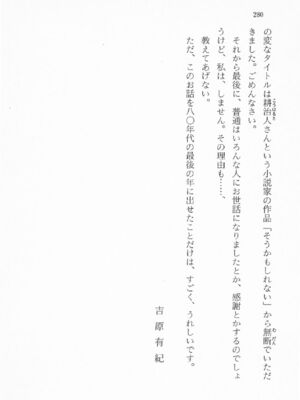 280
の変なタイトルは耕治人さんという小説家の作品「そうかもしれない」から無断でいただ
きました。ごめんなさい。
それから最後に、普通はいろんな人にお世話になりましたとか、感謝とかするのでしょ
うけど、私は、しません。その理由も……、
教えてあげない。
ただ、このお話を八〇年代の最後の年に出せたことだけは、すごく、うれしいです。
吉原有紀